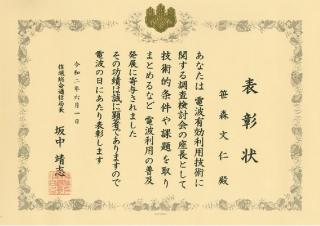 表彰状
笹森文仁 殿
あなたは 電波有効利用技術に
関する調査検討会の座長として
技術的条件や課題を取り
まとめるなど 電波利用の普及
発展に寄与されました
その功績は誠に顕著でありますので
電波の日にあたり表彰します
令和二年六月一日
信越総合通信局長
坂中靖志